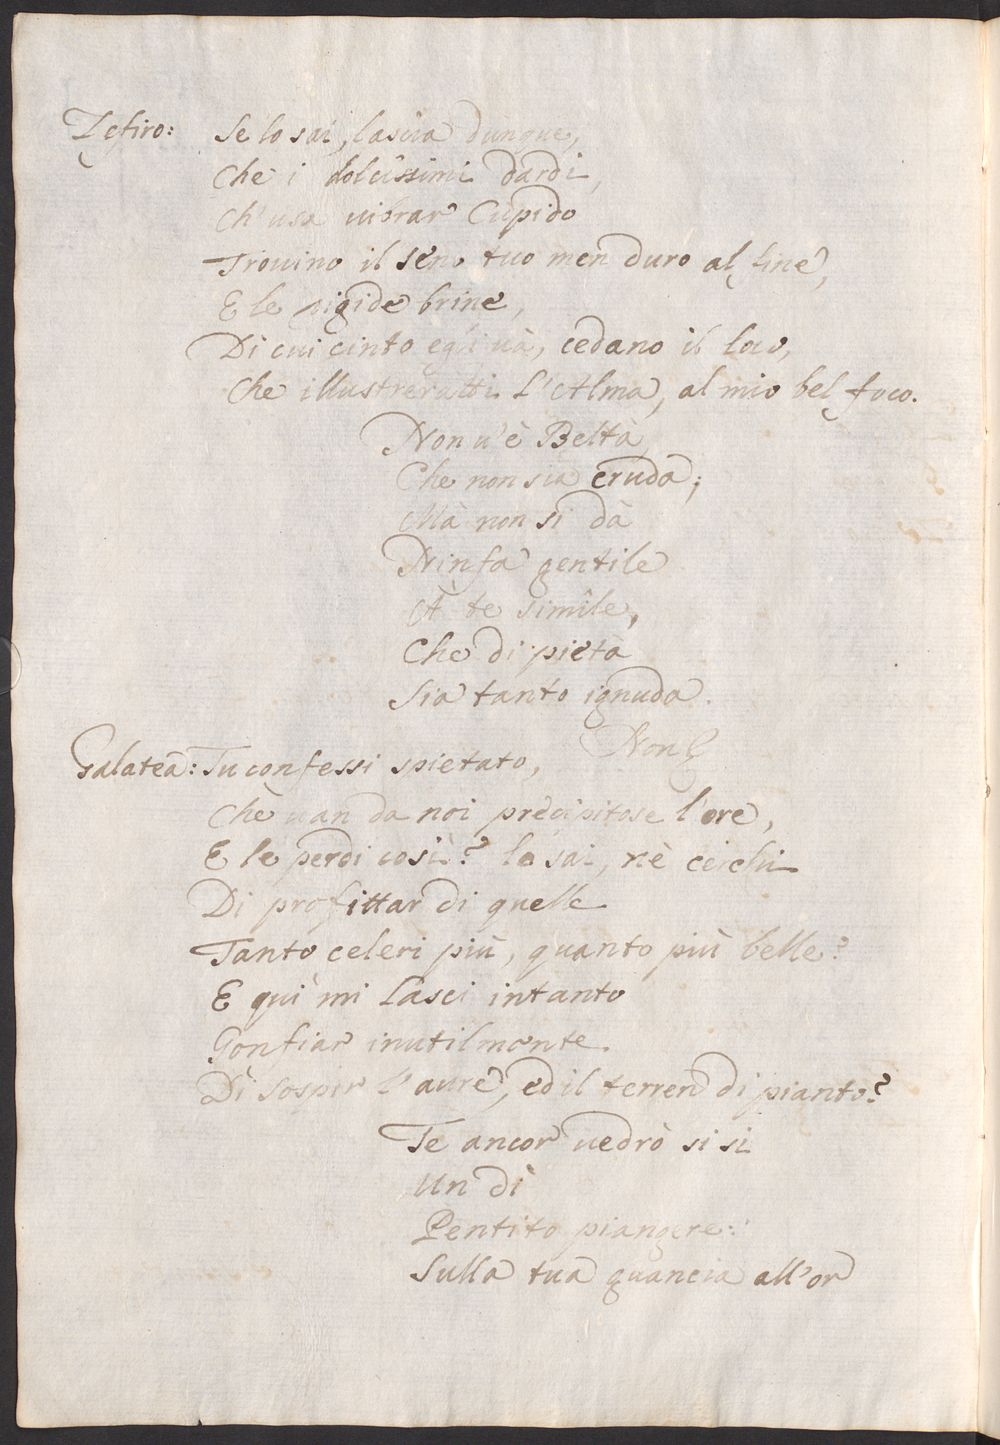 Zefiro: Se lo sai, lascia dunque,
Che i dolcissimi dardi,
Ch'usa vibrar Cupido
Trouino il seno tuo men duro al fine,
E le rigide brine,
Di cui cinto egli uà, cedano il loco,
Che illustreratti L'Alma, al mio bel foco.
Non u'è Beltà
Che non sia cruda;
Mà non si dà
Ninfa gentile
A te simile,
Che di pietà
Sia tanto ignuda.
Non
Galatea: Tu confessi spietato,
Che uan da noi precipitose l'ore,
E le perdi così? lo sai, nè cerchi
Di profittar di quelle
Tanto celeri più, quanto più belle?
E qui mi lasci intanto
Gonfiar inutilmente
Di sospir l'aure, ed il terren di pianto?
Te ancor uedrò si si
Un dì
Pentito piangere:
Sulla tua guancia all'or